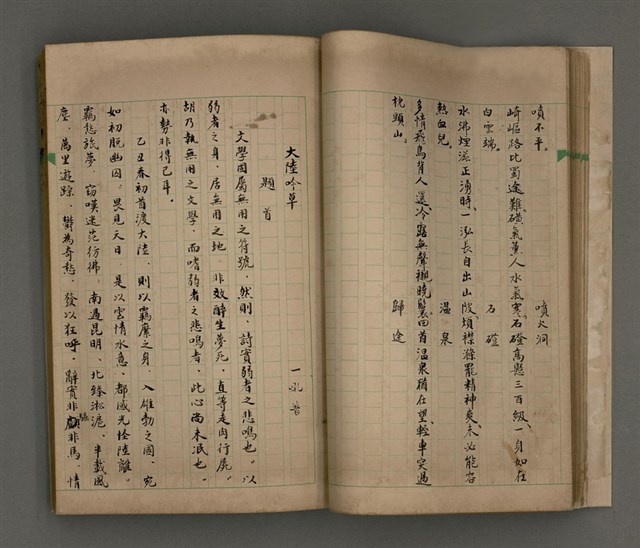 噴不平。
噴火洞
崎嶇路比蜀途難、磺氣薰人水氣寒、石磴高懸三百級、一身如在
白雲端。
石磴
水沸堙滋正湧時、一泓長自出山陂、頃襟滌罷精神爽、未必能容
熱血兒。
溫泉
多情飛鳥背人還、冷露無聲襯曉鬟、回首溫泉猶在望、輕車突過
枕頭山。
歸途
大陸吟草
題首
一吼書
文學固屬無用之符號。然則、詩實弱者之悲鳴也。以
弱者之身、居無用之地、非效醉生夢死、直等走肉行屍。
胡乃執無用之文學、而嗜弱者之悲鳴者、此心尚未泯也。
亦勢非得已耳。
乙丑春初首渡大陸、則以羈縻之身、入雄勃之國、宛
如初脫幽囚、畏見天日、是以雲情水意、都感光怪陸離。
羈愁旅夢、窃嘆迷茫彷彿。南過昆明、北歸淞滬、半載風
塵、萬里遊踪、鬱為奇愁、發以狂呼、辭實非驢非馬、情